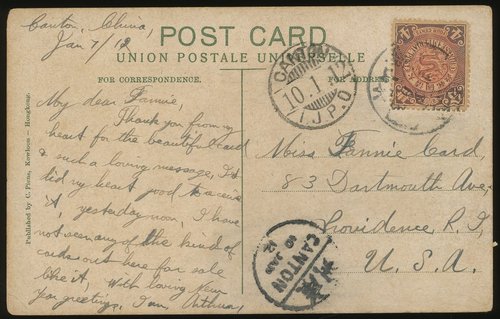 Canton, China,
Jan 7/12
POST CARD
UNION POSTALE UNIVERSELLE
FOR CORRESPONDENCE.
FOR ADDRESS
My dear Fannie,
Thank you from my
heart for the beautiful card
& such a loving message, It
did my heart good to receive
it, yesterday noon, I have
not seen any of the kind of
out here for sale
like it, With loving New
Year greetings, I am, Arthur,
Published by C. Pious, Kowloon - Hongkong.
CANTON
10.1.12
I.J.P.O
Miss Fannie Card,
83 Dartmouth Ave,
Providence R.I,
U.S.A.
CANTON
10 JAN
12